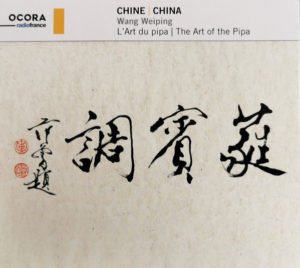 OCORA
radiofrance
CHINE | CHINA
Wang Weiping
L'Art du pipa | The Art of the Pipa
蕤賓調
題